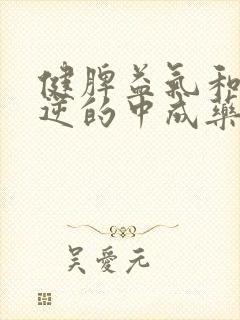 健脾益氣和
逆的中成藥
吴愛元